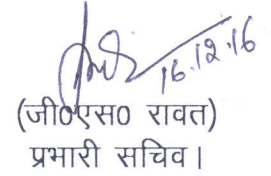 16.12.16
(जी०एस० रावत)
प्रभारी सचिव।